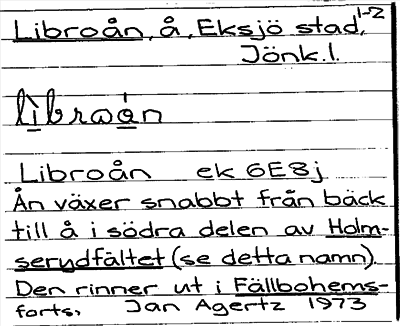 Libroån, å, Eksjö stad, 1-2
Jönk.l.
lìbrωán
Libroån ek 6E8j
Ån växer snabbt från bäck
till å i södra delen av Holm-
serydfältet (se detta namn).
Den rinner ut i Fällbohems-
forts. Jan Agertz 1973